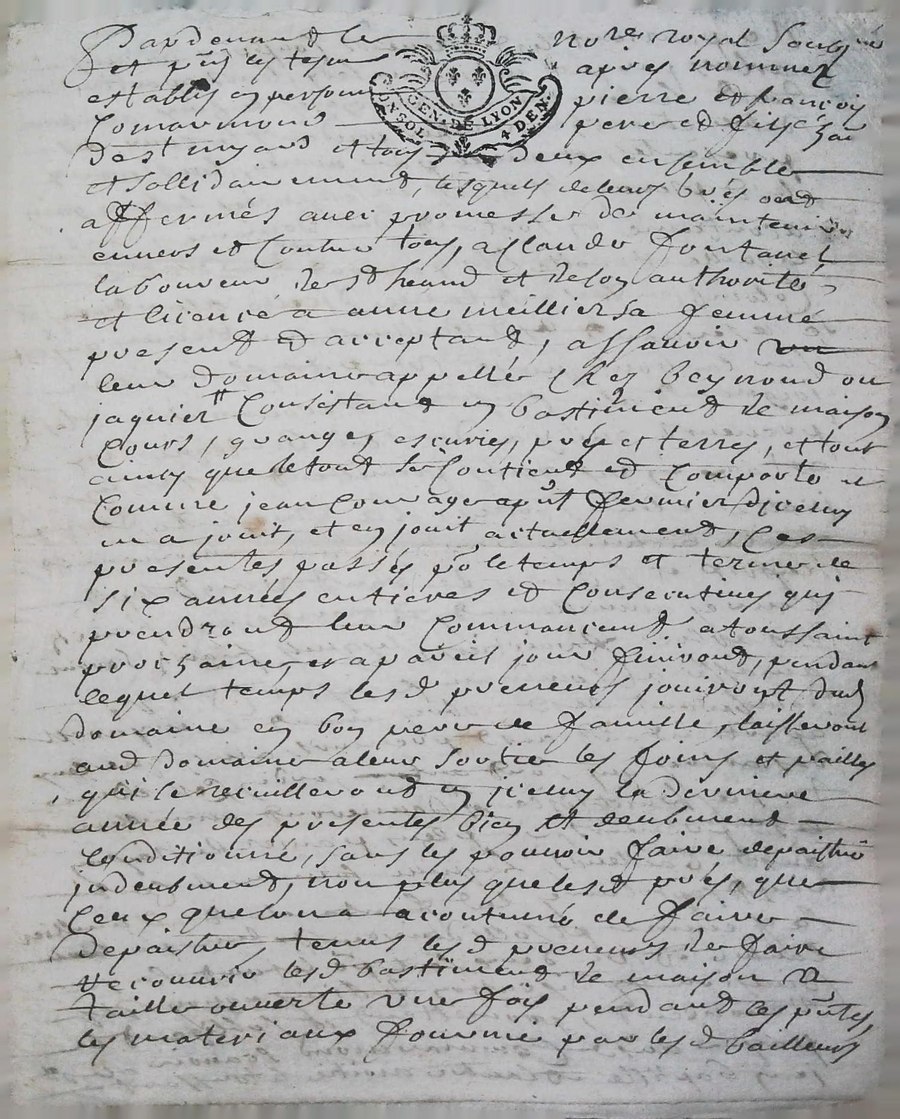 Pardevant le no.re royal Soubz.né
et p.nts les tesm. apres nommez
establis en personne pierre et françois
Comarmond pere et fils de
de S.t et tous deux ensemble
et sollidairement, lesquels de leurs grés ont
affermés avec promesse de maintenir
envers et Contre tous, a Claude fontanel
laboureur de S.t heand et de son authorité
et licence a anne meillier sa femme
present et acceptant, assavoir un
leur domaine appellé Chez beynoud ou
jaquier Consistant en bastiment de maison
Cours, granges, escuries, prés et terres, et tout
ainsy que le tout se Contient et Comporte et
Comme jean Courage a p.nt fermier d'jceluy
en a jouit, et en jouit actuellement, Ces
presentes passés p.r le temps et terme de
six années entieres et Consecutives qui
prendront leur Commancent a toussaint
prochaine, et a pareil jour finiront, pendant
lequel temps les d preneurs jouiront dud
domaine en bon pere de famille, laisseront
aud domaine a leur sortie les foins et pailles
qui se recuilleront en jceluy la derniere
année des presentes bien et deubment
Conditionné, sans les pouvoir faire depaistre
jndeubment, non plus que lesd prés, que
Ceux que l'on a acoutumé de faire
depaistre, tenus les d preneurs de faire
recouvrir lesd bastiment de maison a
taille ouverte une fois pendant les p.ntes,
les materiaux fournie par les d bailleurs
GEN. DE LYON
UN SOL 4 DEN.